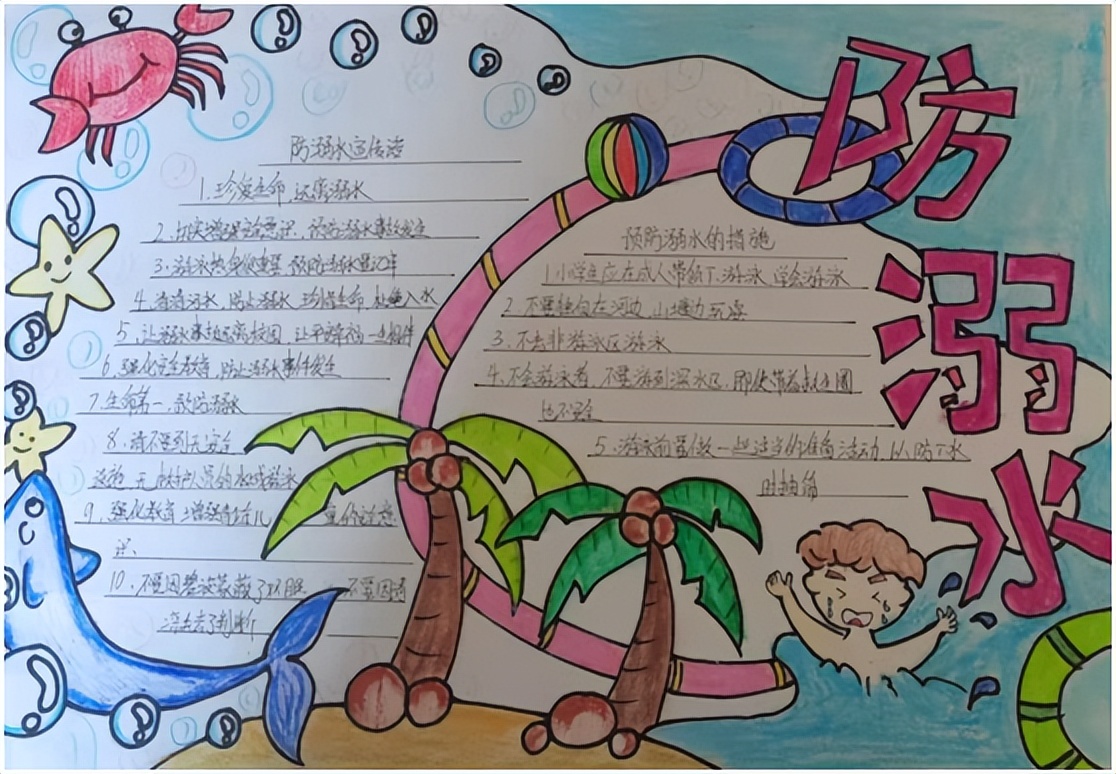 防溺水
防溺水宣传语
1.珍爱生命,远离溺水
2.切实增强安全意识,预防溺水事故发生
3.游泳热身很重要 预防溺水要记牢
4.清清河水,防止溺水,珍惜生命,拒绝入水
5.让溺水事故远离校园,让平安幸福一生相伴
6.强化安全教育,防止溺水事件发生
7.生命第一,预防溺水
8.请不要到无安全
设施,无救护人员的水域游泳
9.强化教育,增强
识、
10.不要因碧波蒙蔽了双眼 不要因清
凉失去了判断
预防溺水的措施
1小学生应在成人带领下游泳 学会游泳
2.不要独自在河边、山塘边玩耍
3.不去非游泳区游泳
4.不会游泳者,不要游到深水区,即使带着救生圈
也不安全
5.游泳前要做一些适当的准备活动,以防下水
时抽筋